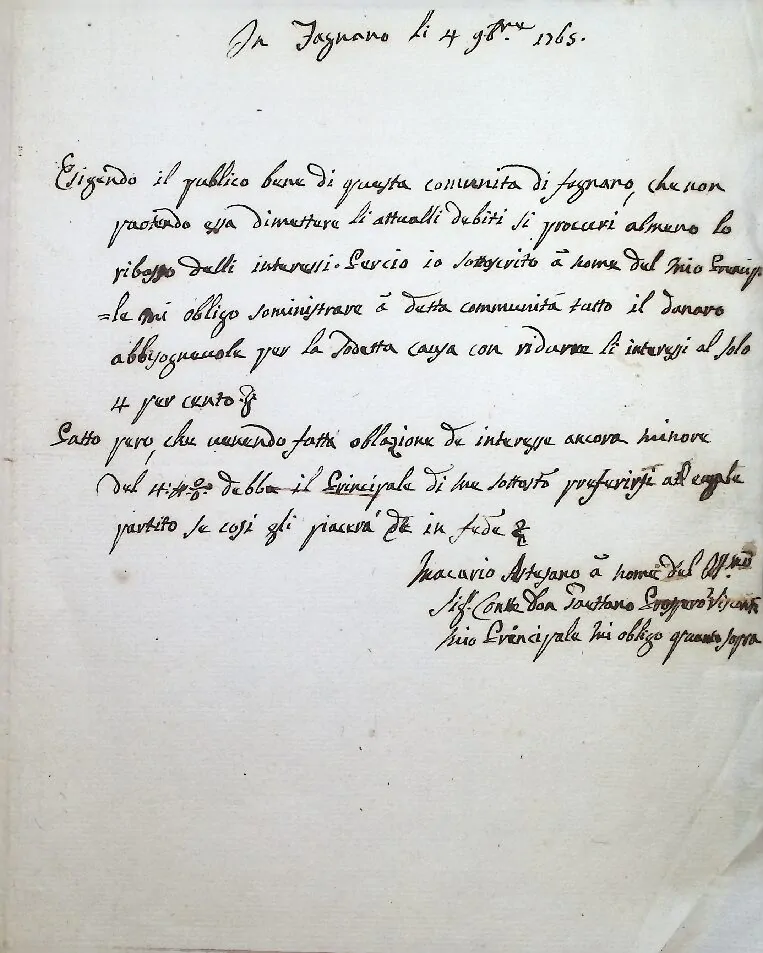 In Fagnano li 4 9bre 1765.
Esigendo il publico bene di questa comunità di fagnano, che non
pottendo essa dimettere li attualli debiti si procuri almeno lo
ribasso delli interessi. Percio io sottoscrito à nome del mio Principa
=le mi obligo soministrare à detta communità tutto il danaro
abbisogneuole per la sodetta causa con ridurre li interessi al solo
4 per cento
Patto però, che uenendo fatta oblazione de interesse ancora minore
del 4 debba il Principale di me sottosto preferirsi ad eguale
partito se cosi gli piacerà in fede
Macario Artesano à nome del Ill.mo
Sig.r Conte Don Gaettano Prospero Visconti
mio Principale mi obligo quanto sopra